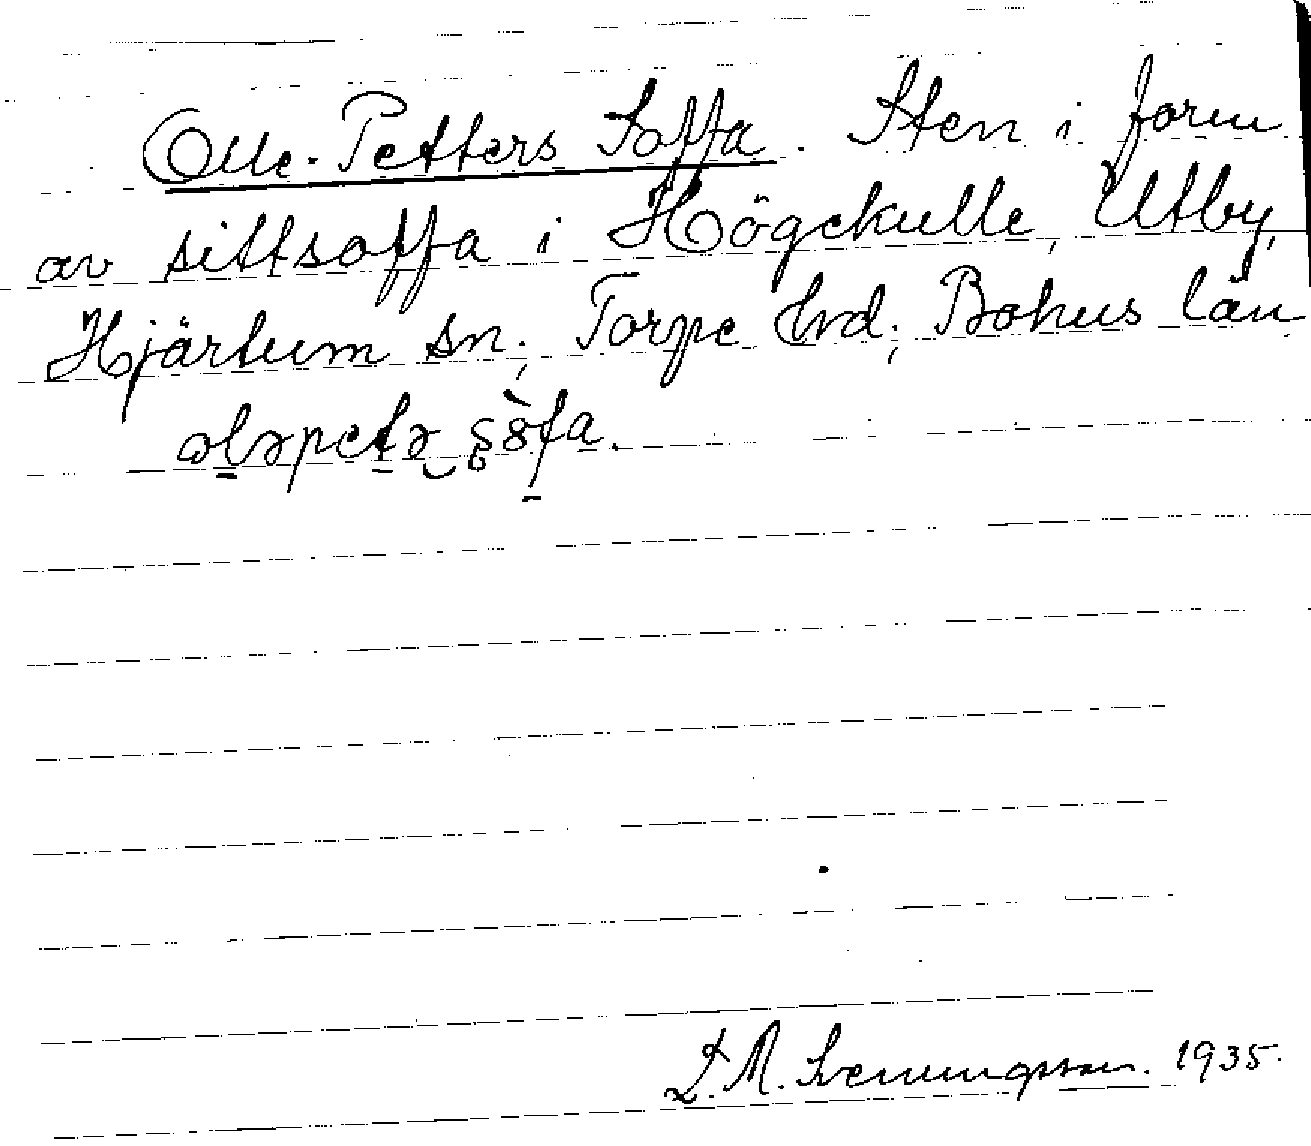 Olle-Petters Soffa. Sten i form
av sittsoffa i Högekulle, Utby,
Hjärtum sn; Torpe hrd; Bohus län
L. M. Svenungsson. 1935.